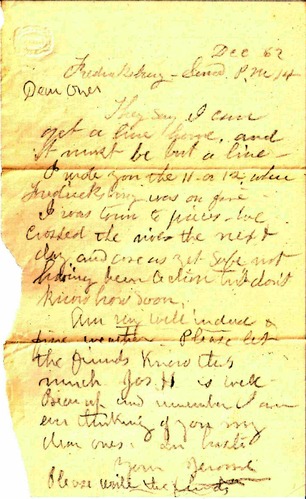 Dec 62
Fredricksburg - Send. P.M 14
Dear Ones
They say I can
get a line home, and
it must be but a line -
I wrote you the 11 or 12 when
Fredricksburg was on fire
I was torn to pieces - we
crossed the river the next
day, and are as yet safe not
having been in action but don't
know how soon.
Am very well indeed &
fine weather Please let
the friends know this
much Jos. H is well
Bear up and remember I am
ever thinking of you my
dear ones. In haste
Your Jerome
Please write the